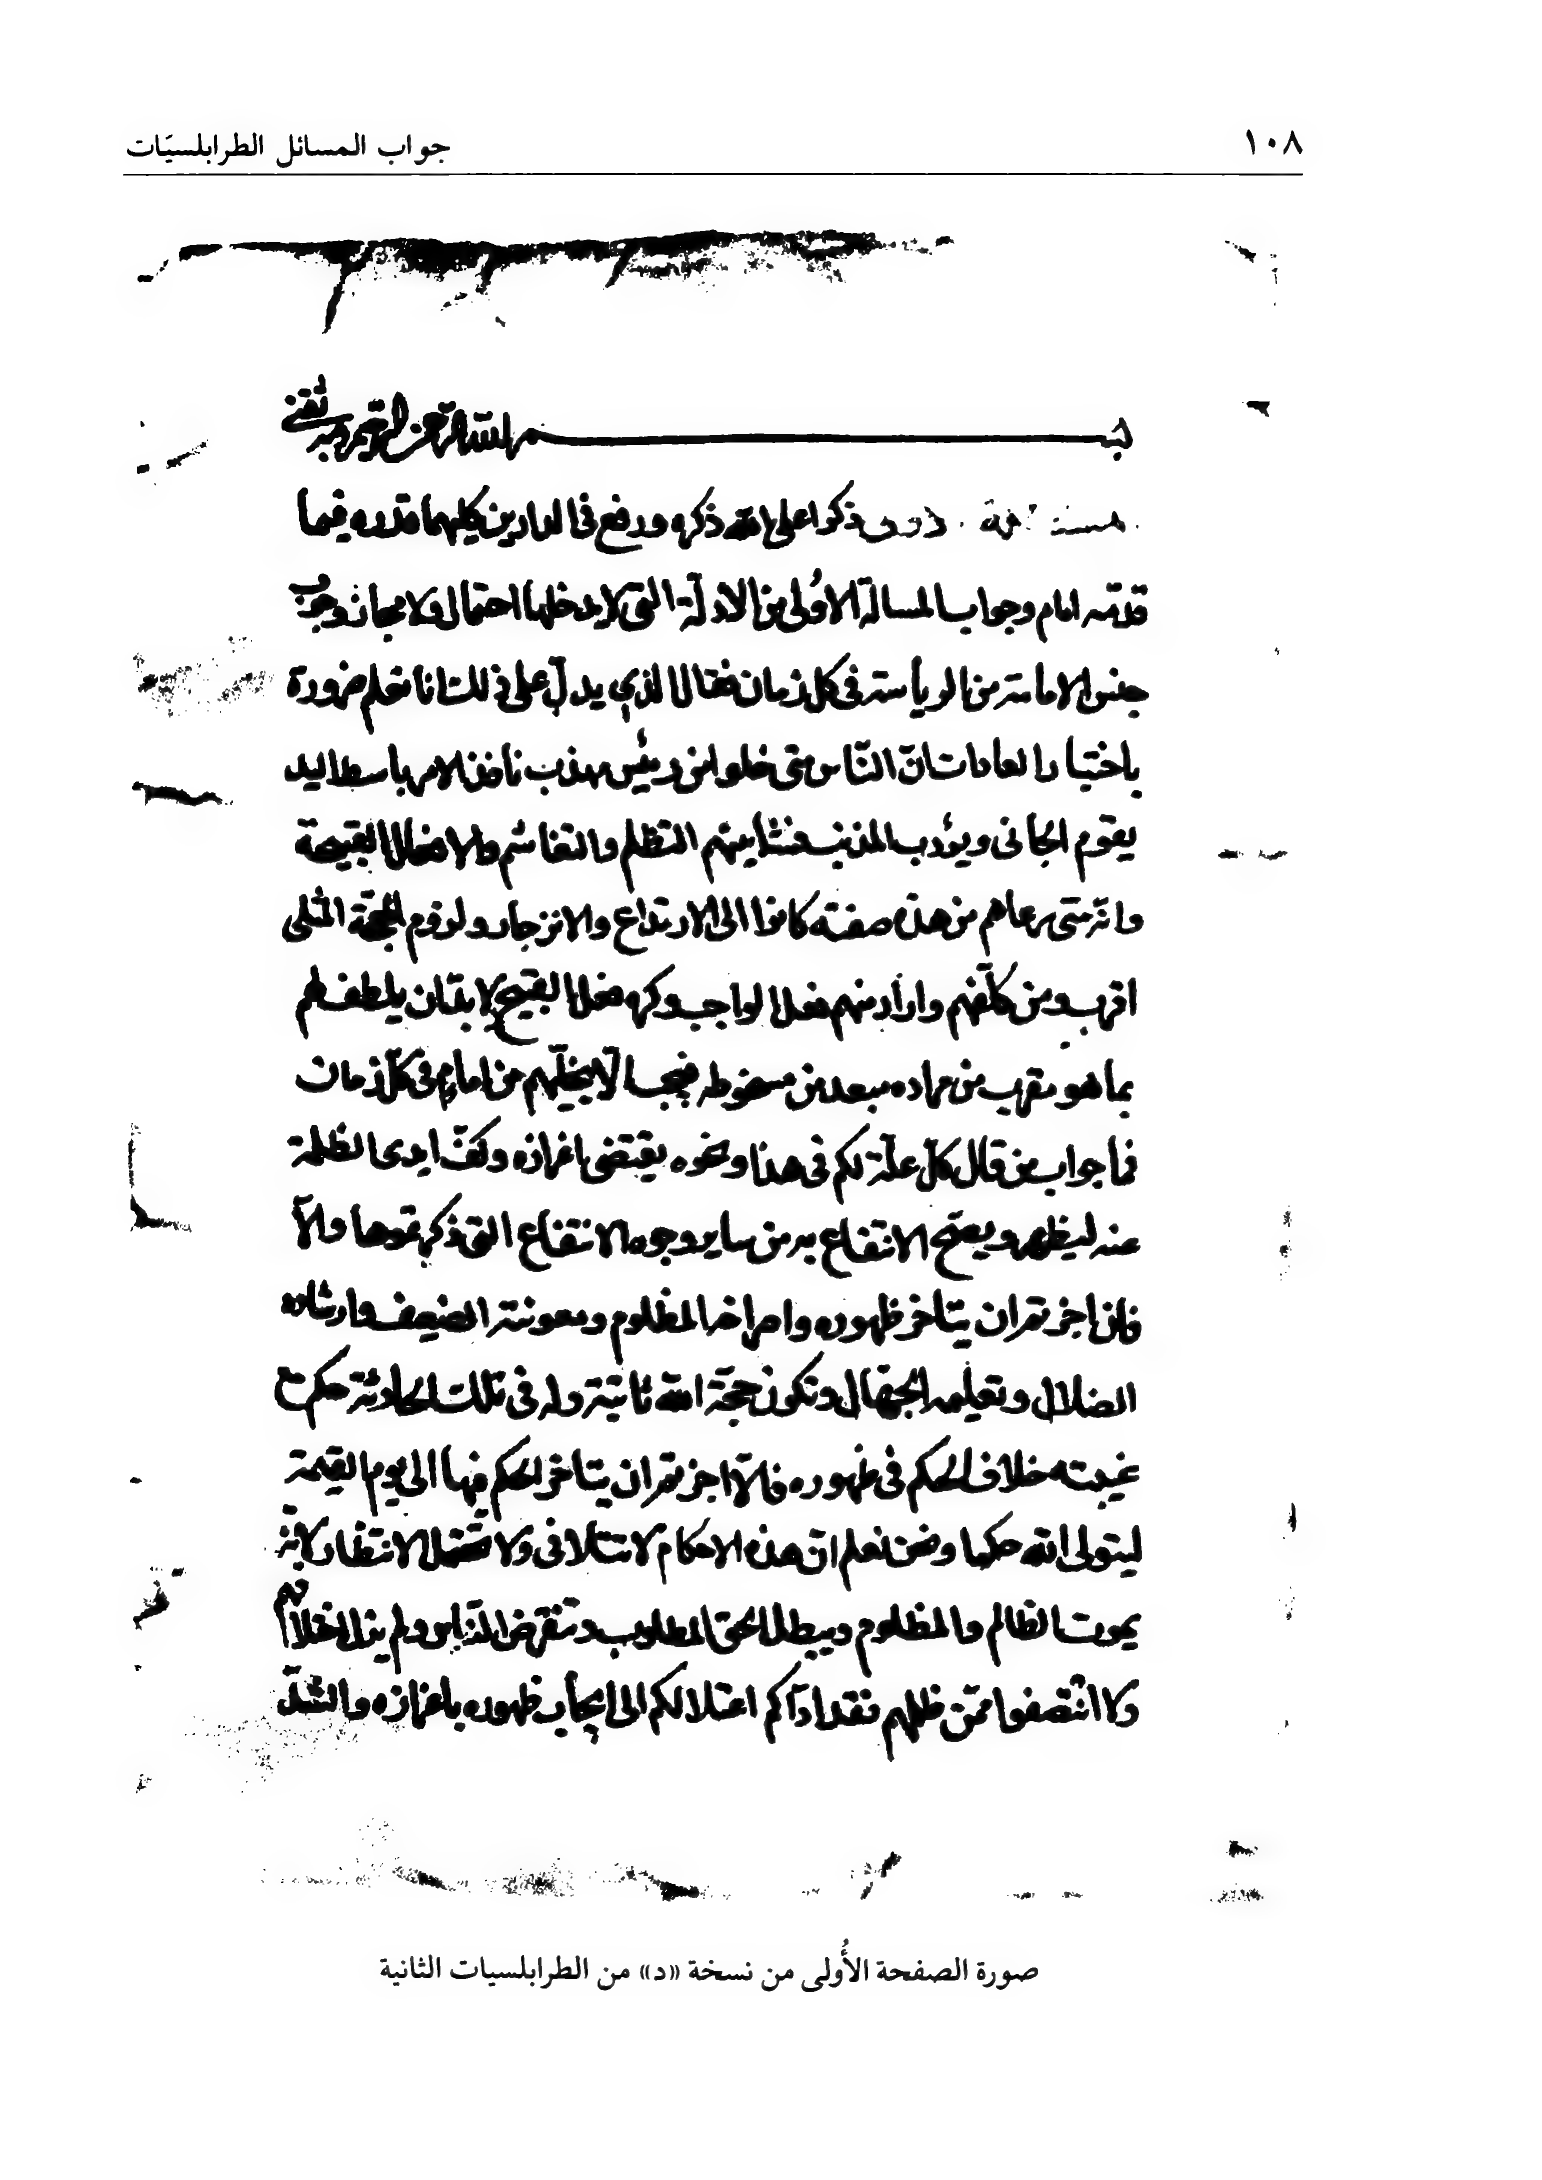 ١٠٨
جواب المسائل الطرابلسيّات
بسم الله الرحمن الرحيم وبه ثقتي
ذكر اعلى الله ذكره ورفع في الدارين كليهما قدره فيما
قدمه امام وجواب المسالة الاُولى من الادلّة التي لا يدخلها احتمال ولا مجاز وجوب
جنس الامامة من الرياسة في كل زمان فقال الذي يدلّ على ذلك انا نعلم ضرورة
باختيار العادات انّ النّاس متى خلوا من رئيس مهذب نافذ الامر باسط اليد
يقوم الجاني ويؤدب المذنب فشا بينهم التظلم والتغاشم والافعال القبيحة
وانّه متى رعاهم من هذه صفته كانوا الى الارتداع والانزجار ولزوم المحجّة المثلى
اقرب ومن كلّفهم واراد منهم فعل الواجب وكره فعل القبيح لا بدّ ان يلطف لهم
بما هو مقرب من مراده مبعد من سخوطه فيجب الّا يخلّيهم من امامٍ في كلّ زمان
فما جواب من قال كلّ علّة لكم في هذا ونحوه يقتضى اعزازه وكفّ ايدى الظلمة
عنه ليظهر ويصحّ الانتفاع به من ساير وجوه الانتفاع التي ذكرتموها والّا
فان اجزتم ان يتاخر ظهوره واصراخ المظلوم ومعونته الضعيف وارشاده
الضلال وتعليمه الجهّال وتكون حجّة الله ثابتة وله في تلك الحادثة حكم مع
غيبته خلاف الحكم في ظهوره فالّا اجزتم ان يتاخر الحكم فيها الى يوم القيمة
ليتولى الله حكمها ونحن نعلم انّ هذه الاحكام لا تتلافى ولا تحتمل الانتظار لانّه
يموت الظالم والمظلوم ويبطل الحق المطلوب وتنقرض النّاس ولم يزل اختلافهم
ولا انتصفوا ممّن ظلمهم فقد ادّاكم اعتلالكم الى ايجاب ظهوره باعزازه والشدّ
صورة الصفحة الأُولى من نسخة «د» من الطرابلسيات الثانية